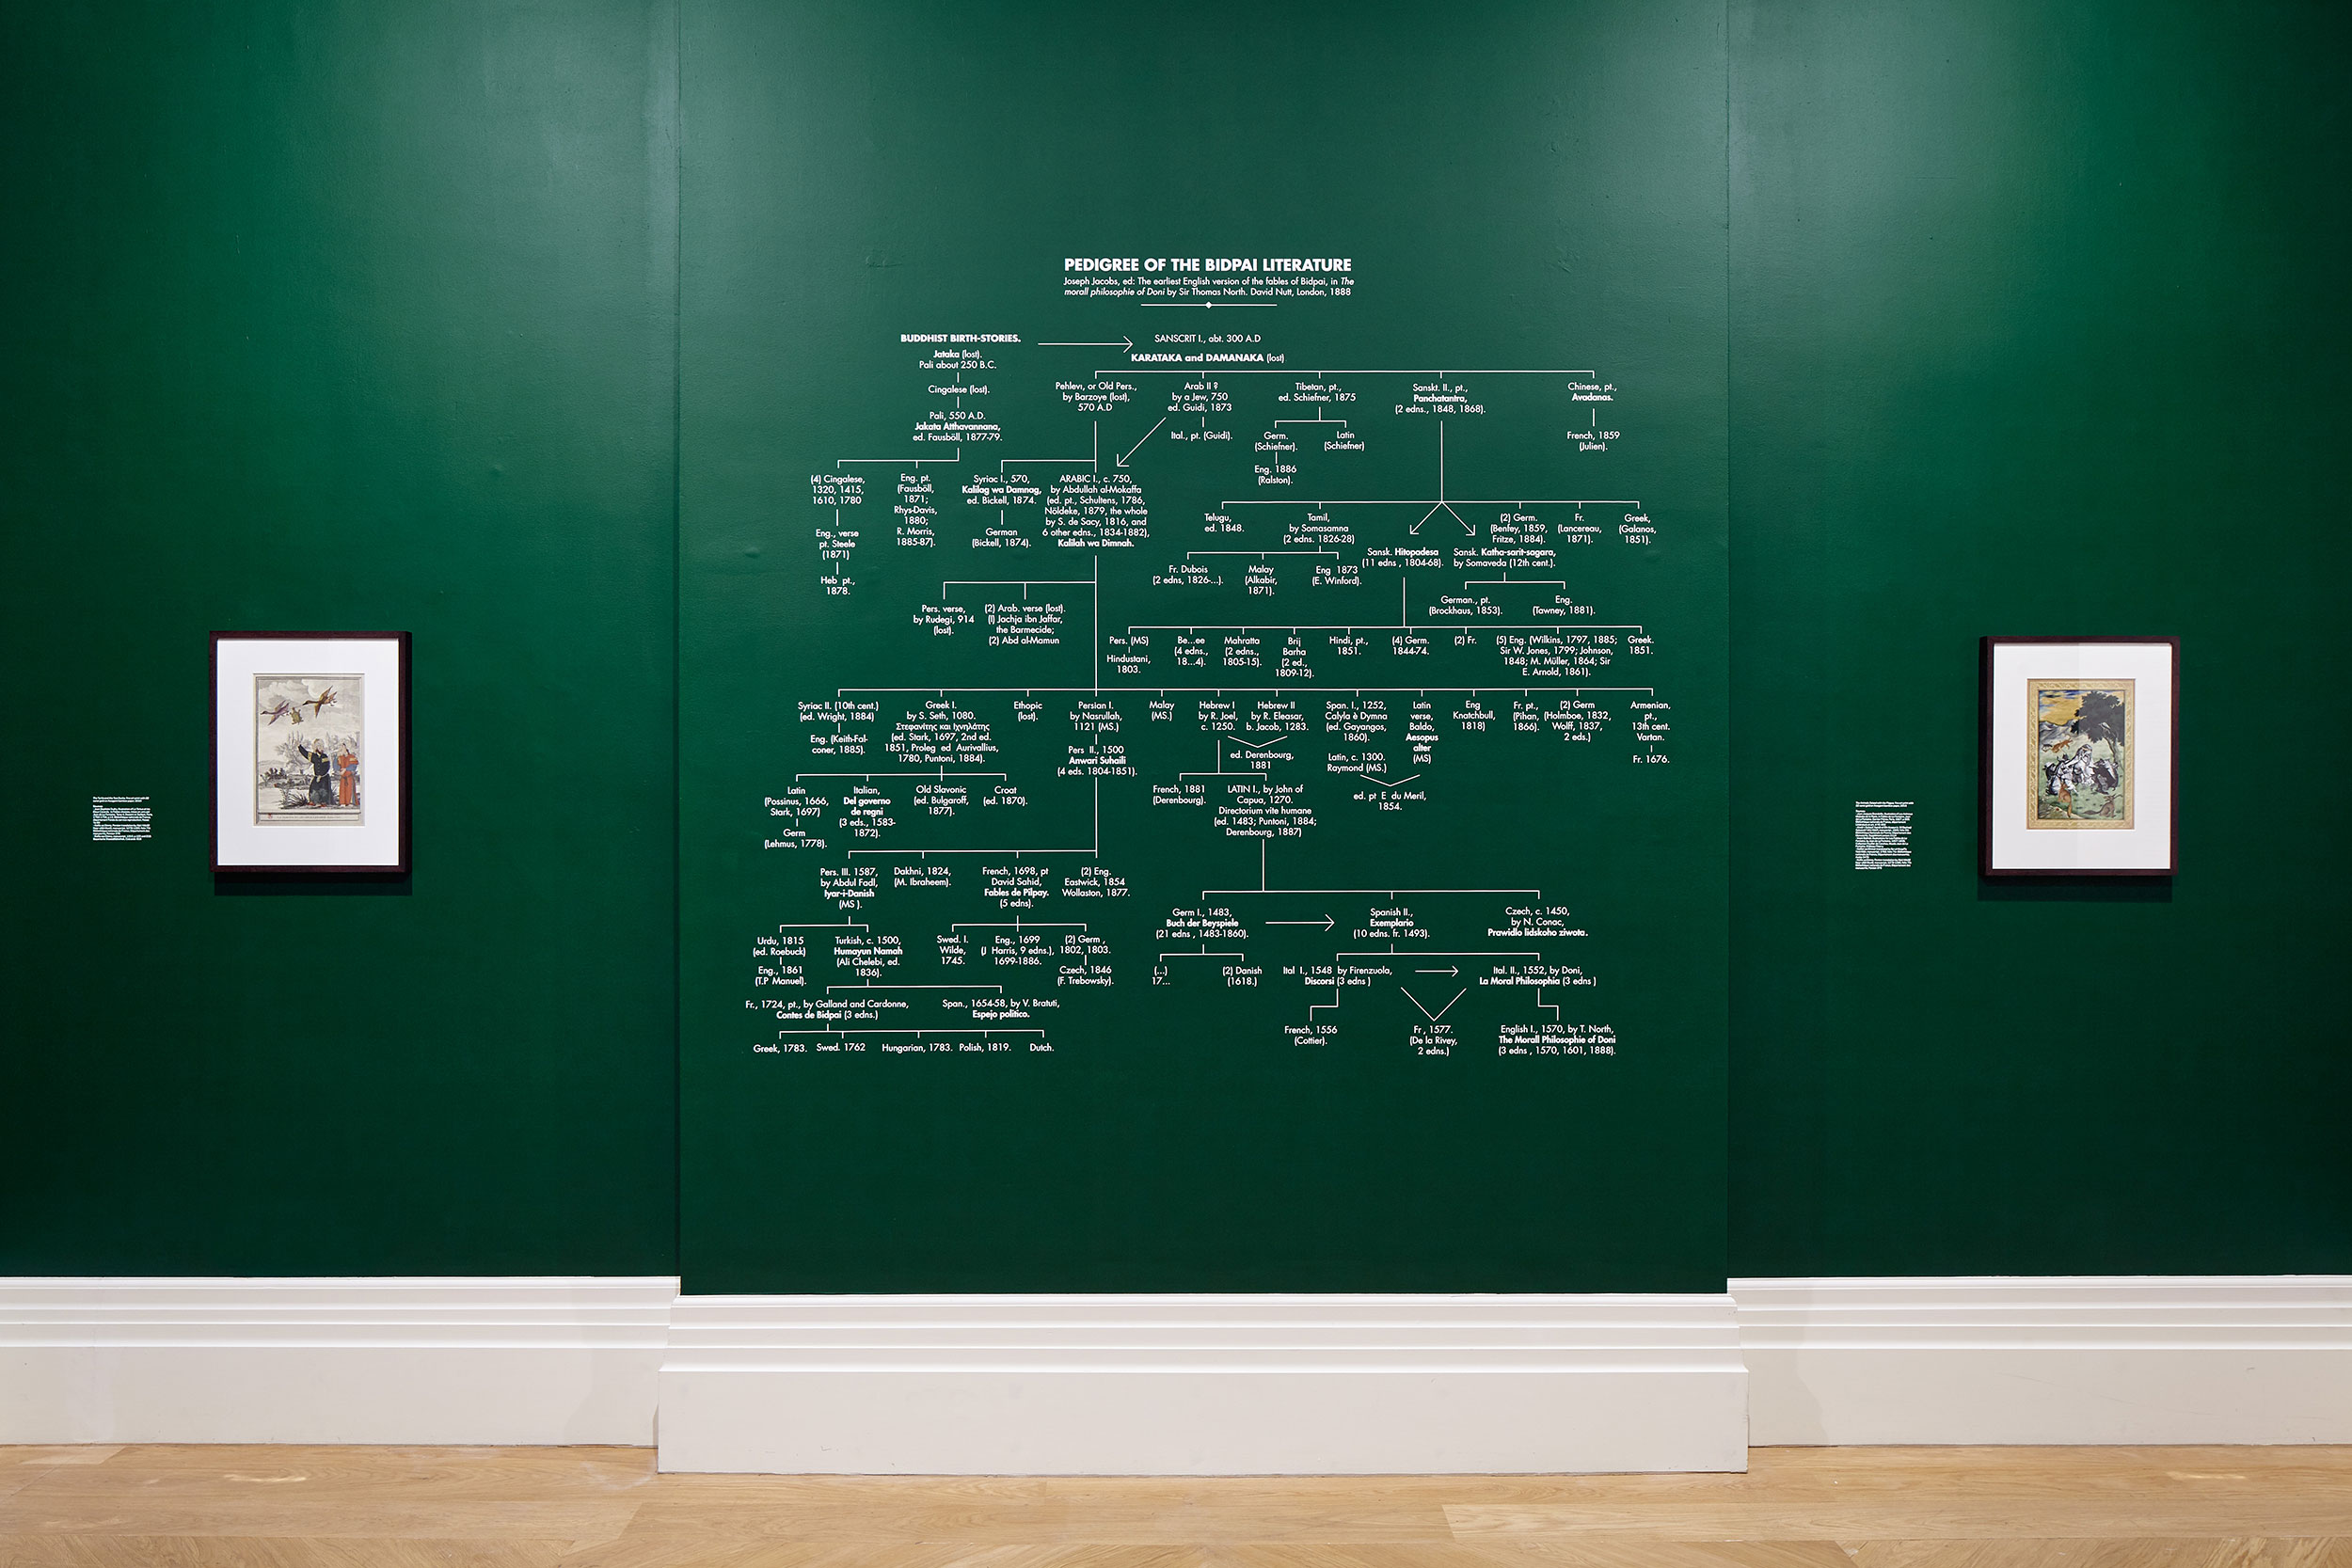 PEDIGREE OF THE BIDPAI LITERATURE
Joseph Jacobs, ed: The earliest English version of the fables of Bidpai, in The
morall philosophie of Doni by Sir Thomas North. David Nutt, London, 1888
BUDDHIST BIRTH-STORIES.
Jataka (lost).
Pali about 250 B.C.
Cingalese (lost).
Pali, 550 A.D.
Jakata Atthavannana,
ed. Fausböll, 1877-79.
(4) Cingalese,
1320, 1415,
1610, 1780
Eng., verse
pt. Steele
(1871)
Heb pt.,
1878.
Eng. pt.
(Fausböll,
1871;
Rhys-Davis,
1880;
R. Morris,
1885-87).
SANSCRIT I., abt. 300 A.D
KARATAKA and DAMANAKA (lost)
Pehlevi, or Old Pers.,
by Barzoye (lost),
570 A.D
Arab II ?
by a Jew, 750
ed. Guidi, 1873
Ital., pt. (Guidi).
Tibetan, pt.,
ed. Schiefner, 1875
Germ.
(Schiefner).
Eng. 1886
(Ralston).
Latin
(Schiefner)
Sanskt. II., pt.,
Panchatantra,
(2 edns., 1848, 1868).
Chinese, pt.,
Avadanas.
French, 1859
(Julien).
Syriac I., 570,
Kalilag wa Damnag,
ed. Bickell, 1874.
German
(Bickell, 1874).
ARABIC I., c. 750,
by Abdullah al-Mokaffa
(ed. pt., Schultens, 1786,
Nöldeke, 1879, the whole
by S. de Sacy, 1816, and
6 other edns., 1834-1882),
Kalilah wa Dimnah.
Telugu,
ed. 1848.
Tamil,
by Somasamna
(2 edns. 1826-28)
Fr. Dubois
(2 edns, 1826-...).
Malay
(Alkabir,
1871).
Eng 1873
(E. Winford).
Sansk. Hitopadesa
(11 edns , 1804-68).
Sansk. Katha-sarit-sagara,
by Somaveda (12th cent.).
(2) Germ.
(Benfey, 1859,
Fritze, 1884).
Fr.
(Lancereau,
1871).
Greek,
(Galanos,
1851).
German., pt.
(Brockhaus, 1853).
Eng.
(Tawney, 1881).
Pers. verse,
by Rudegi, 914
(lost).
(2) Arab. verse (lost).
(I) Jachja ibn Jaffar,
the Barmecide;
(2) Abd al-Mamun
Pers. (MS)
Hindustani,
1803.
Be...ee
(4 edns.,
18...4).
Mahratta
(2 edns.,
1805-15).
Brij
Barha
(2 ed.,
1809-12).
Hindi, pt.,
1851.
(4) Germ.
1844-74.
(2) Fr.
(5) Eng. (Wilkins, 1797, 1885;
Sir W. Jones, 1799; Johnson,
1848; M. Müller, 1864; Sir
E. Arnold, 1861).
Greek.
1851.
Syriac II. (10th cent.)
(ed. Wright, 1884)
Eng. (Keith-Fal-
coner, 1885).
Greek I.
by S. Seth, 1080.
Στεφανίτης και Ιχνηλάτης
(ed. Stark, 1697, 2nd ed.
1851, Proleg ed Aurivallius,
1780, Puntoni, 1884).
Ethopic
(lost).
Persian I.
by Nasrullah,
1121 (MS.)
Pers II., 1500
Anwari Suhaili
(4 eds. 1804-1851).
Malay
(MS.)
Hebrew I
by R. Joel,
c. 1250.
Hebrew II
by R. Eleasar,
b. Jacob, 1283.
ed. Derenbourg,
1881
Span. I., 1252,
Calyla è Dymna
(ed. Gayangos,
1860).
Latin, c. 1300.
Raymond (MS.)
Latin
verse,
Baldo,
Aesopus
alter
(MS)
ed. pt E du Meril,
1854.
Eng
Knatchbull,
1818)
Fr. pt.,
(Pihan,
1866).
(2) Germ
(Holmboe, 1832,
Wolff, 1837,
2 eds.)
Armenian,
pt.,
13th cent.
Vartan.
Fr. 1676.
Latin
(Possinus, 1666,
Stark, 1697)
Germ
(Lehmus, 1778).
Italian,
Del governo
de regni
(3 eds., 1583-
1872).
Old Slavonic
(ed. Bulgaroff,
1877).
Croat
(ed. 1870).
French, 1881
(Derenbourg).
LATIN I., by John of
Capua, 1270.
Directorium vite humane
(ed. 1483; Puntoni, 1884;
Derenbourg, 1887)
Pers. III. 1587,
by Abdul Fadl,
Iyar-i-Danish
(MS ).
Dakhni, 1824,
(M. Ibraheem).
French, 1698, pt
David Sahid,
Fables de Pilpay.
(5 edns).
(2) Eng.
Eastwick, 1854
Wollaston, 1877.
Urdu, 1815
(ed. Roebuck)
Eng., 1861
(T.P Manuel).
Turkish, c. 1500,
Humayun Namah
(Ali Chelebi, ed.
1836).
Swed. I.
Wilde,
1745.
Eng., 1699
(J Harris, 9 edns.),
1699-1886.
(2) Germ ,
1802, 1803.
Czech, 1846
(F. Trebowsky).
Fr., 1724, pt., by Galland and Cardonne,
Contes de Bidpai (3 edns.)
Span., 1654-58, by V. Bratuti,
Espejo politico.
Greek, 1783.
Swed. 1762
Hungarian, 1783.
Polish, 1819.
Dutch.
Germ I., 1483,
Buch der Beyspiele
(21 edns , 1483-1860).
(...)
17...
(2) Danish
(1618.)
Spanish II.,
Exemplario
(10 edns. fr. 1493).
Czech, c. 1450,
by N. Conac,
Prawidlo lidskoho ziwota.
Ital I., 1548 by Firenzuola,
Discorsi (3 edns )
Ital. II., 1552, by Doni,
La Moral Philosophia (3 edns )
French, 1556
(Cottier).
Fr , 1577.
(De la Rivey,
2 edns.)
English I., 1570, by T. North,
The Morall Philosophie of Doni
(3 edns , 1570, 1601, 1888).